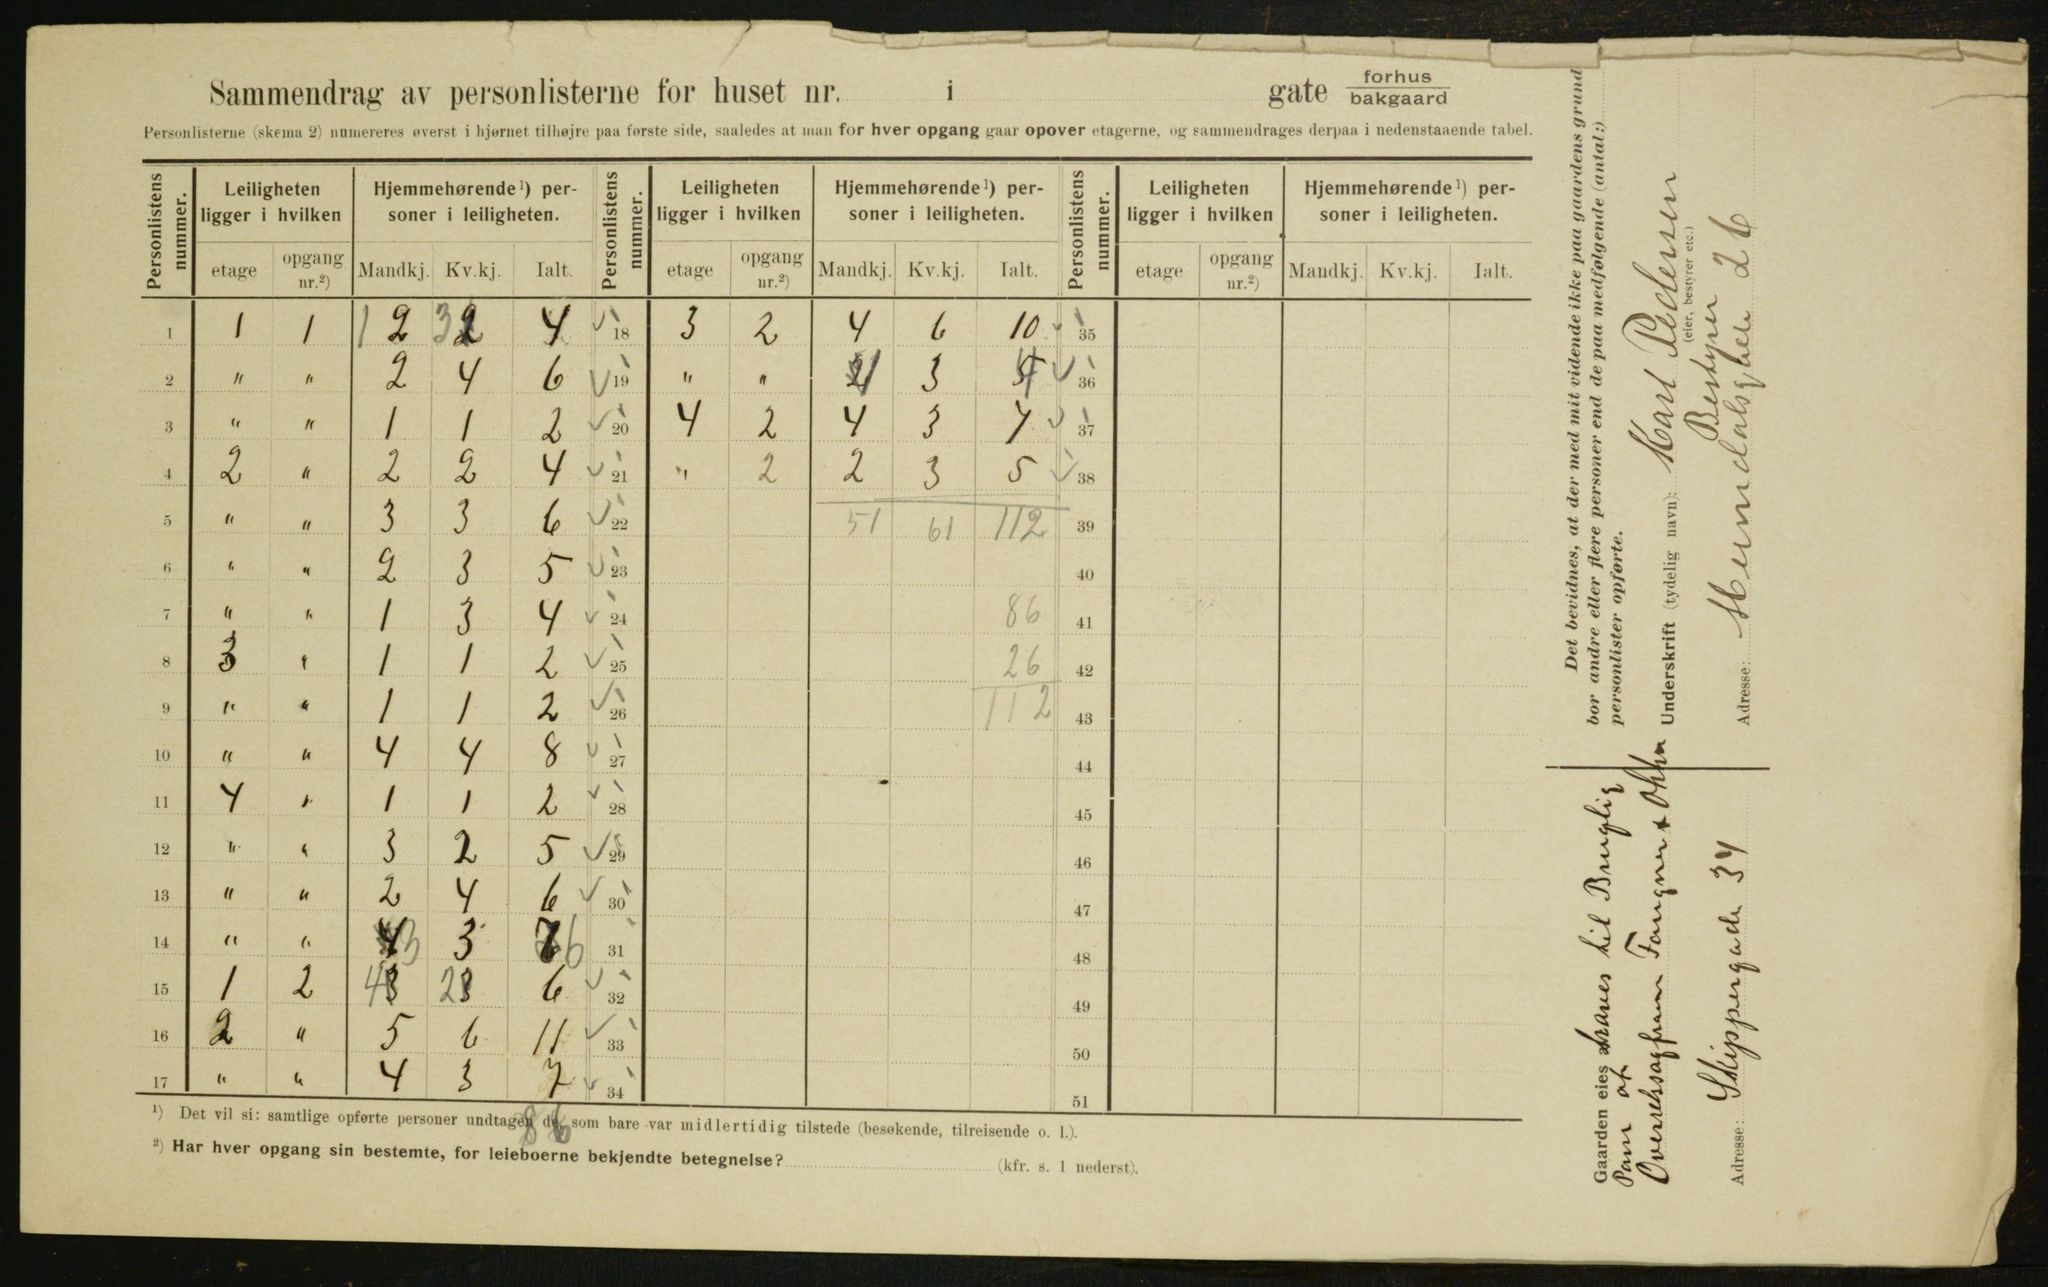 Sammendrag av personlisterne for huset nr. i gate forhus bakgaard
Personlisterne (skema 2) numereres øverst i hjørnet tilhøjre paa første side, saaledes at man for hver opgang gaar opover etagerne, og sammendrages derpaa i nedenstaaende tabel.
Personlistens nummer. Leiligheten ligger i hvilken Hjemmehørende¹) personer i leiligheten. Personlistens nummer. Leiligheten ligger i hvilken Hjemmehørende¹) personer i leiligheten. Personlistens nummer. Leiligheten ligger i hvilken Hjemmehørende¹) personer i leiligheten.
etage opgang nr.²) Mandkj. Kv.kj. Ialt. etage opgang nr.²) Mandkj. Kv.kj. Ialt. etage opgang nr.²) Mandkj. Kv.kj. Ialt.
1 1 1 1 2 3 2 4 18 3 2 4 6 10 35
2 " " 2 4 6 19 " " 1 3 4 36
3 " " 1 1 2 20 4 2 4 3 7 37
4 2 " 2 2 4 21 " 2 2 3 5 38
5 " " 3 3 6 22 51 61 112 39
6 " " 2 3 5 23 40
7 " " 1 3 4 24 86 41
8 3 " 1 1 2 25 26 42
9 " " 1 1 2 26 112 43
10 " " 4 4 8 27 44
11 4 " 1 1 2 28 45
12 " " 3 2 5 29 46
13 " " 2 4 6 30 47
14 " " 4 3 3 7 6 31 48
15 1 2 4 3 2 3 6 32 49
16 2 " 5 6 11 33 50
17 " " 4 3 7 34 51
86
¹) Det vil si: samtlige opførte personer undtagen de, som bare var midlertidig tilstede (besøkende, tilreisende o. l.).
²) Har hver opgang sin bestemte, for leieboerne bekjendte betegnelse? (kfr. s. 1 nederst).
Det bevidnes, at der med mit vidende ikke paa gaardens grund
bor andre eller flere personer end de paa medfølgende (antal:)
personlister opførte.
Underskrift (tydelig navn): Karl Pedersen
(eier, bestyrer etc.)
Bestyrer
Adresse: Mundalsgade 26
Gaarden eies av
Overretssagfører
Adresse: Skippergade 34